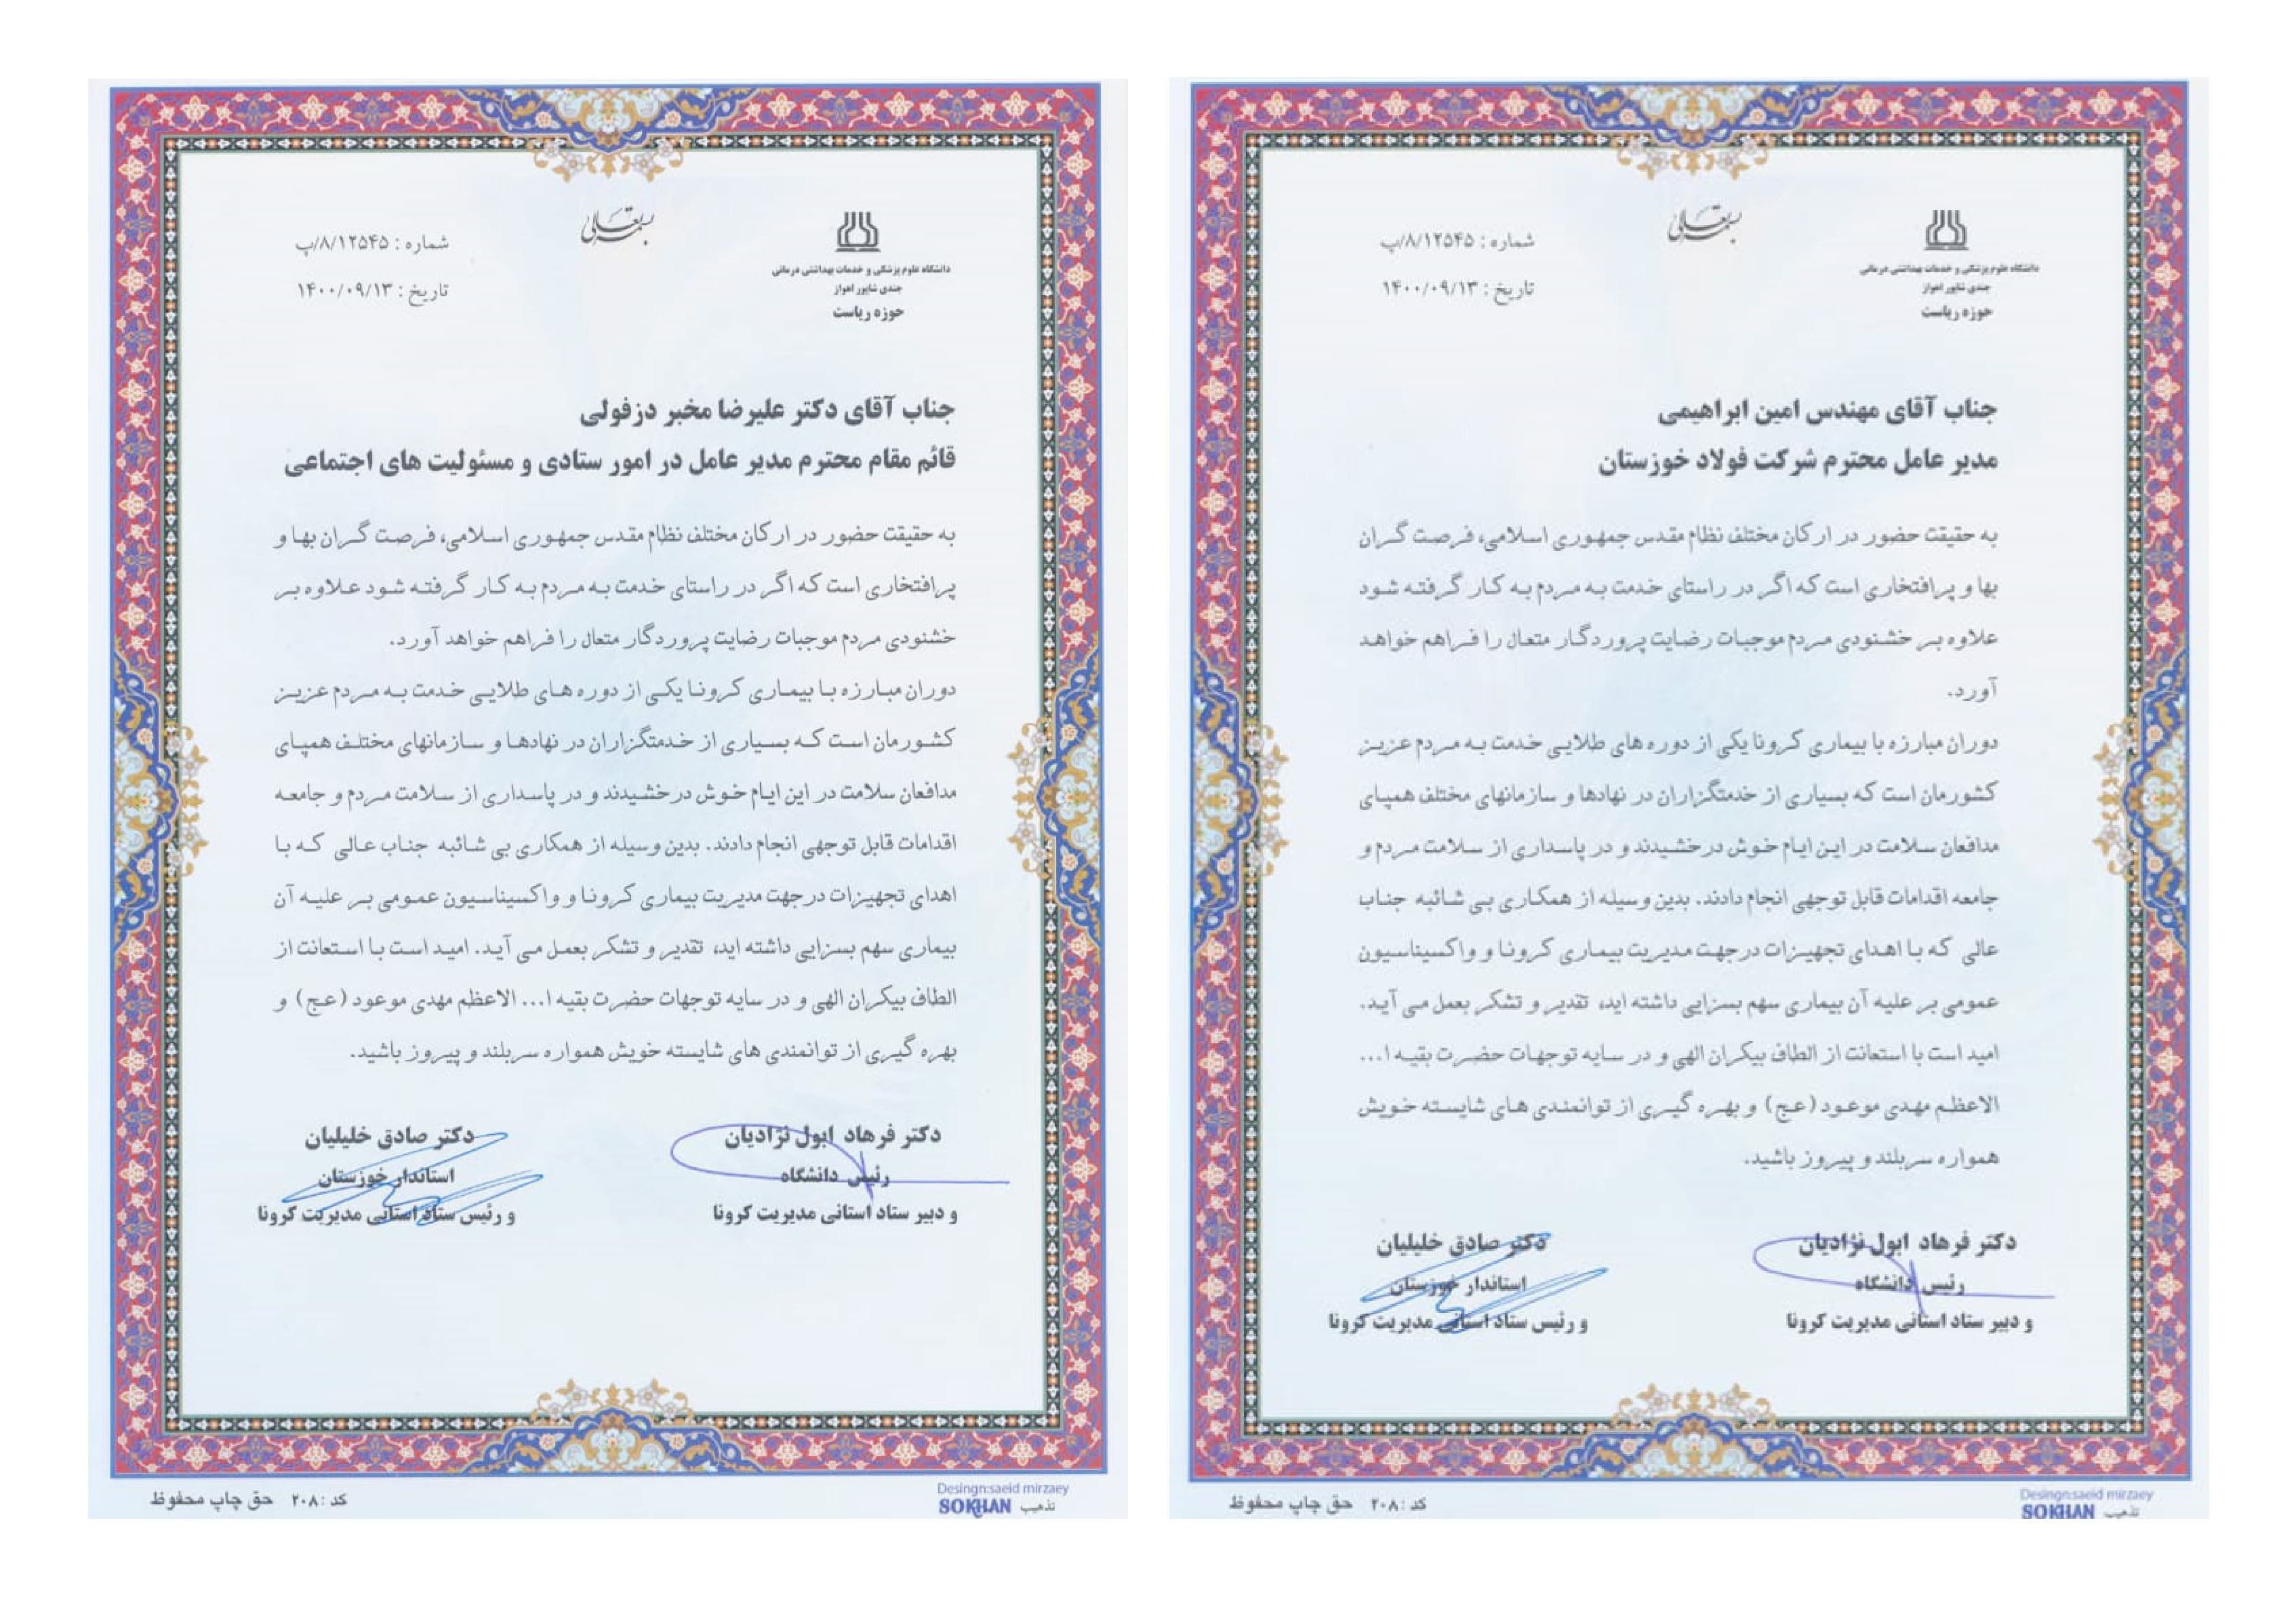 بسمه تعالی
دانشگاه علوم پزشکی و خدمات بهداشتی درمانی
جندی شاپور اهواز
حوزه ریاست
شماره : ۸/۱۲۵۴۵/پ
تاریخ : ۱۴۰۰/۰۹/۱۳
جناب آقای مهندس امین ابراهیمی
مدیر عامل محترم شرکت فولاد خوزستان
به حقیقت حضور در ارکان مختلف نظام مقدس جمهوری اسلامی، فرصت گران
بها و پرافتخاری است که اگر در راستای خدمت به مردم به کار گرفته شود
علاوه بر خشنودی مردم موجبات رضایت پروردگار متعال را فراهم خواهد
آورد.
دوران مبارزه با بیماری کرونا یکی از دوره های طلایی خدمت به مردم عزیز
کشورمان است که بسیاری از خدمتگزاران در نهادها و سازمانهای مختلف همپای
مدافعان سلامت در این ایام خوش درخشیدند و در پاسداری از سلامت مردم و
جامعه اقدامات قابل توجهی انجام دادند. بدین وسیله از همکاری بی شائبه جناب
عالی که با اهدای تجهیزات درجهت مدیریت بیماری کرونا و واکسیناسیون
عمومی بر علیه آن بیماری سهم بسزایی داشته اید، تقدیر و تشکر بعمل می آید.
امید است با استعانت از الطاف بیکران الهی و در سایه توجهات حضرت بقیه ا...
الاعظم مهدی موعود (عج) و بهره گیری از توانمندی های شایسته خویش
همواره سربلند و پیروز باشید.
دکتر فرهاد ابول نژادیان
رئیس دانشگاه
و دبیر ستاد استانی مدیریت کرونا
دکتر صادق خلیلیان
استاندار خوزستان
و رئیس ستاد استانی مدیریت کرونا
Desingn:saeid mirzaey
تذهیب SOKHAN
کد : ۲۰۸ حق چاپ محفوظ
بسمه تعالی
دانشگاه علوم پزشکی و خدمات بهداشتی درمانی
جندی شاپور اهواز
حوزه ریاست
شماره : ۸/۱۲۵۴۵/پ
تاریخ : ۱۴۰۰/۰۹/۱۳
جناب آقای دکتر علیرضا مخبر دزفولی
قائم مقام محترم مدیر عامل در امور ستادی و مسئولیت های اجتماعی
به حقیقت حضور در ارکان مختلف نظام مقدس جمهوری اسلامی، فرصت گران بها و
پرافتخاری است که اگر در راستای خدمت به مردم به کار گرفته شود علاوه بر
خشنودی مردم موجبات رضایت پروردگار متعال را فراهم خواهد آورد.
دوران مبارزه با بیماری کرونا یکی از دوره های طلایی خدمت به مردم عزیز
کشورمان است که بسیاری از خدمتگزاران در نهادها و سازمانهای مختلف همپای
مدافعان سلامت در این ایام خوش درخشیدند و در پاسداری از سلامت مردم و جامعه
اقدامات قابل توجهی انجام دادند. بدین وسیله از همکاری بی شائبه جناب عالی که با
اهدای تجهیزات درجهت مدیریت بیماری کرونا و واکسیناسیون عمومی بر علیه آن
بیماری سهم بسزایی داشته اید، تقدیر و تشکر بعمل می آید. امید است با استعانت از
الطاف بیکران الهی و در سایه توجهات حضرت بقیه ا... الاعظم مهدی موعود (عج) و
بهره گیری از توانمندی های شایسته خویش همواره سربلند و پیروز باشید.
دکتر فرهاد ابول نژادیان
رئیس دانشگاه
و دبیر ستاد استانی مدیریت کرونا
دکتر صادق خلیلیان
استاندار خوزستان
و رئیس ستاد استانی مدیریت کرونا
Desingn:saeid mirzaey
تذهیب SOKHAN
کد : ۲۰۸ حق چاپ محفوظ